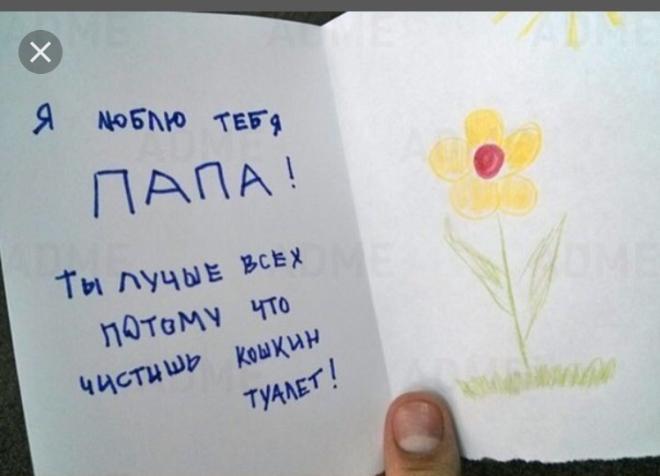 Я люблю ТЕБЯ
ПАПА!
ТЫ ЛУЧШЕ ВСЕХ
ПОТОМУ ЧТО
ЧИСТИШЬ КОШКИН
ТУАЛЕТ!
ADME
ADME
ADME
ADME
ADME
ADME